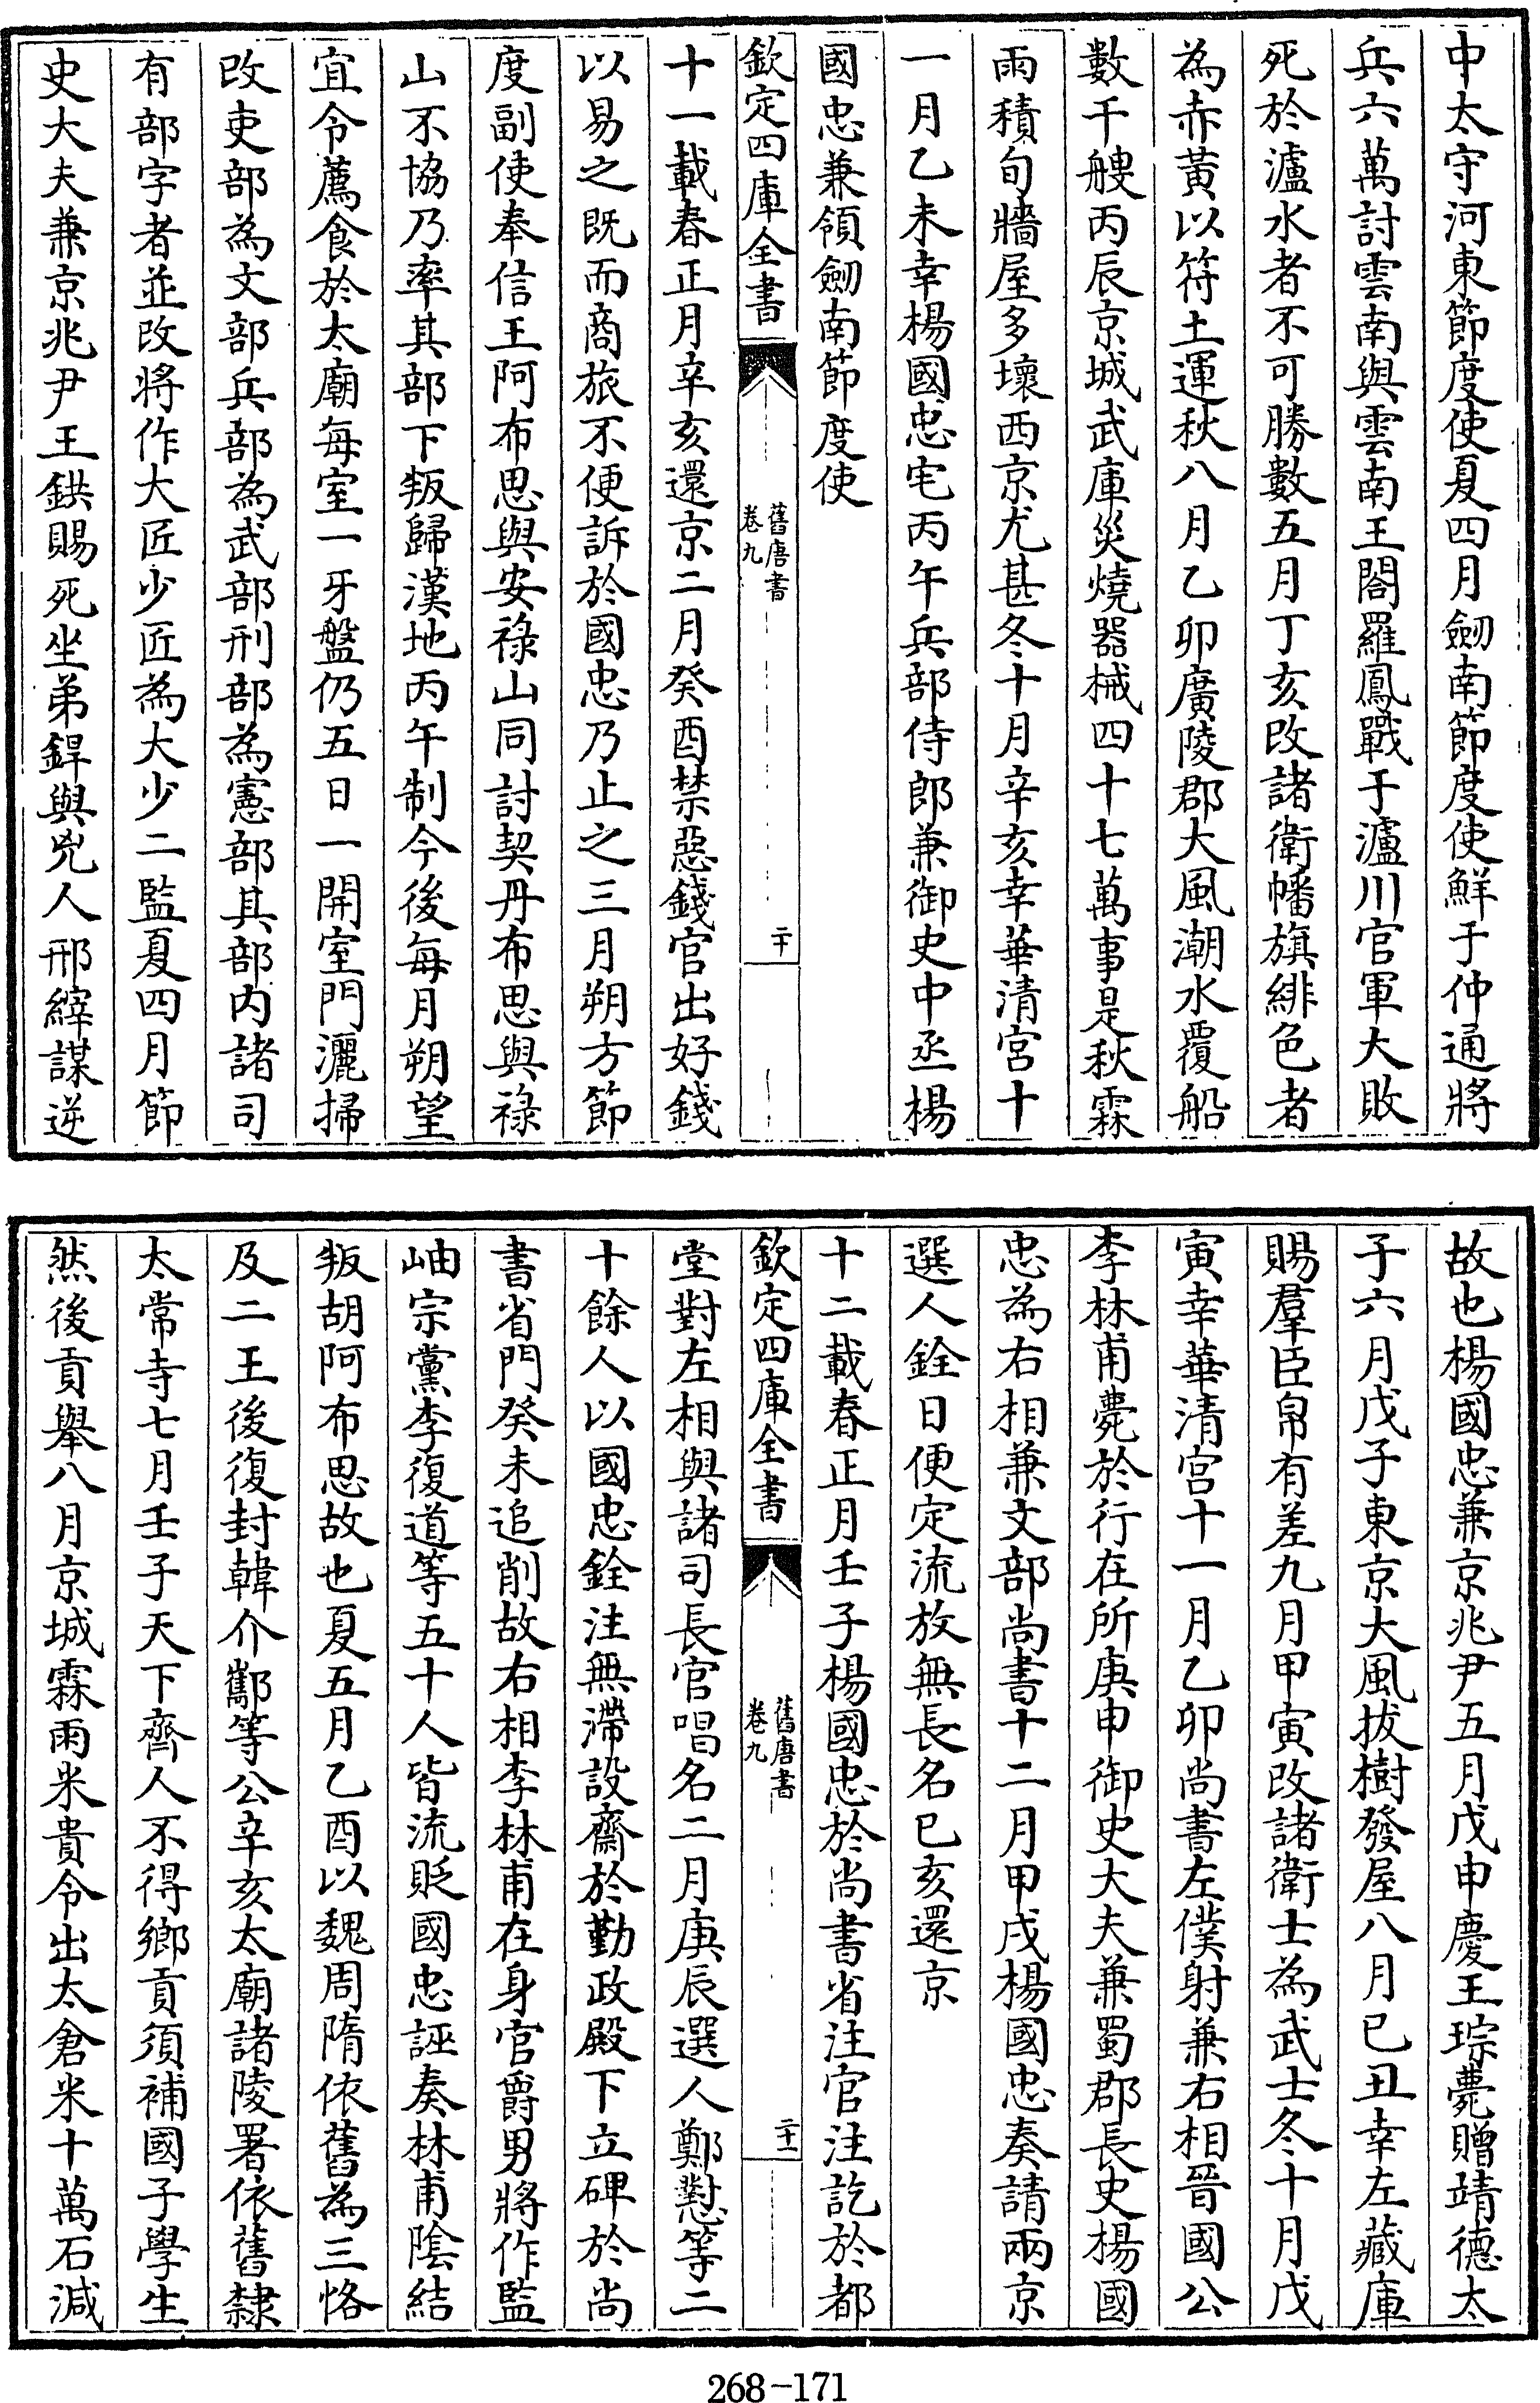 中太守河東節度使夏四月劒南節度使鮮于仲通將
兵六萬討雲南與雲南王閤羅鳳戰于瀘川官軍大敗
死於瀘水者不可勝數五月丁亥改諸衛幡旗緋色者
為赤黄以符土運秋八月乙卯廣陵郡大風潮水覆船
數千艘丙辰京城武庫災燒器械四十七萬事是秋霖
雨積旬牆屋多壞西京尤甚冬十月辛亥幸華清宫十
一月乙未幸楊國忠宅丙午兵部侍郎兼御史中丞楊
國忠兼領劒南節度使
欽定四庫全書
舊唐書
卷九
二十
十一載春正月辛亥還京二月癸酉禁惡錢官出好錢
以易之既而商旅不便訴於國忠乃止之三月朔方節
度副使奉信王阿布思與安祿山同討契丹布思與祿
山不協乃率其部下叛歸漢地丙午制今後每月朔望
宜令薦食於太廟每室一牙盤仍五日一開室門灑掃
改吏部為文部兵部為武部刑部為憲部其部内諸司
有部字者並改將作大匠少匠為大少二監夏四月節
史大夫兼京兆尹王鉷賜死坐弟銲與兇人邢縡謀逆
故也楊國忠兼京兆尹五月戊申慶王琮薨贈靖德太
子六月戊子東京大風拔樹發屋八月已丑幸左藏庫
賜羣臣帛有差九月甲寅改諸衛士為武士冬十月戊
寅幸華清宫十一月乙卯尚書左僕射兼右相晉國公
李林甫薨於行在所庚申御史大夫兼蜀郡長史楊國
忠為右相兼文部尚書十二月甲戌楊國忠奏請兩京
選人銓日便定流放無長名已亥還京
十二載春正月壬子楊國忠於尚書省注官注訖於都
欽定四庫全書
舊唐書
卷九
二十一
堂對左相與諸司長官唱名二月庚辰選人鄭懟等二
十餘人以國忠銓注無滯設齋於勤政殿下立碑於尚
書省門癸未追削故右相李林甫在身官爵男將作監
岫宗黨李復道等五十人皆流貶國忠誣奏林甫陰結
叛胡阿布思故也夏五月乙酉以魏周隋依舊為三恪
及二王後復封韓介酅等公辛亥太廟諸陵署依舊隸
太常寺七月壬子天下齊人不得鄉貢須補國子學生
然後貢舉八月京城霖雨米貴令出太倉米十萬石減
268-171